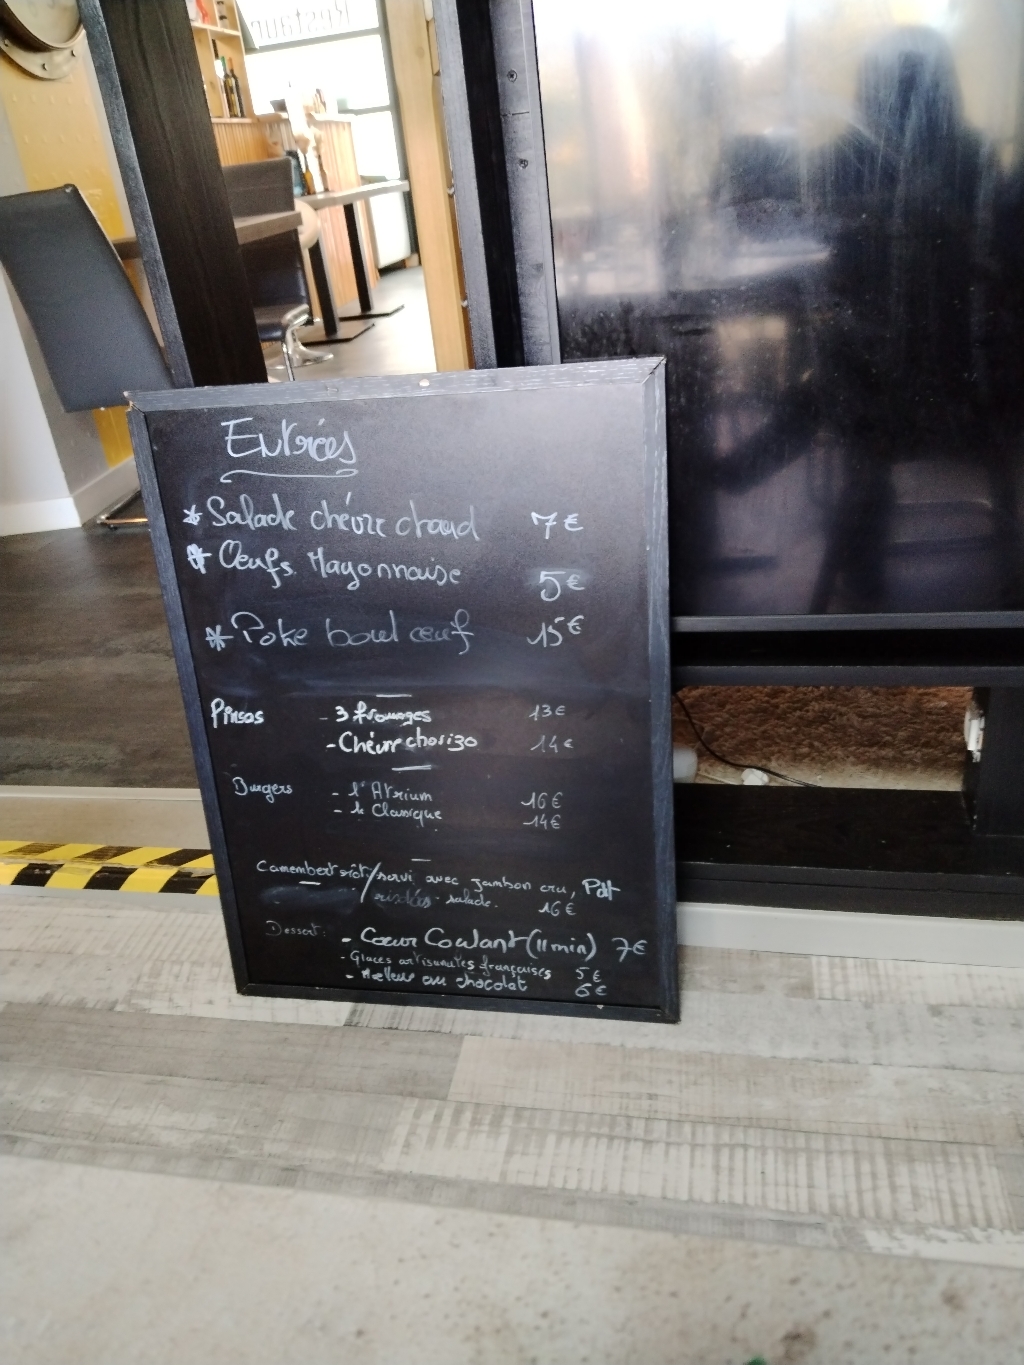 Restaur
Entrées
* Salade chèvre chaud 7€
* Œufs Mayonnaise 5€
* Poke bowl œuf 15€
Pinsas - 3 fromages 13€
- Chèvre chorizo 14€
Burgers - l'Atrium 16€
- le Classique 14€
Camembert rôti/servi avec jambon cru, Pdt
salade. 16€
Dessert: - Cœur Coulant (11 min) 7€
- Glaces artisanales françaises 5€
- Moelleux au chocolat 6€